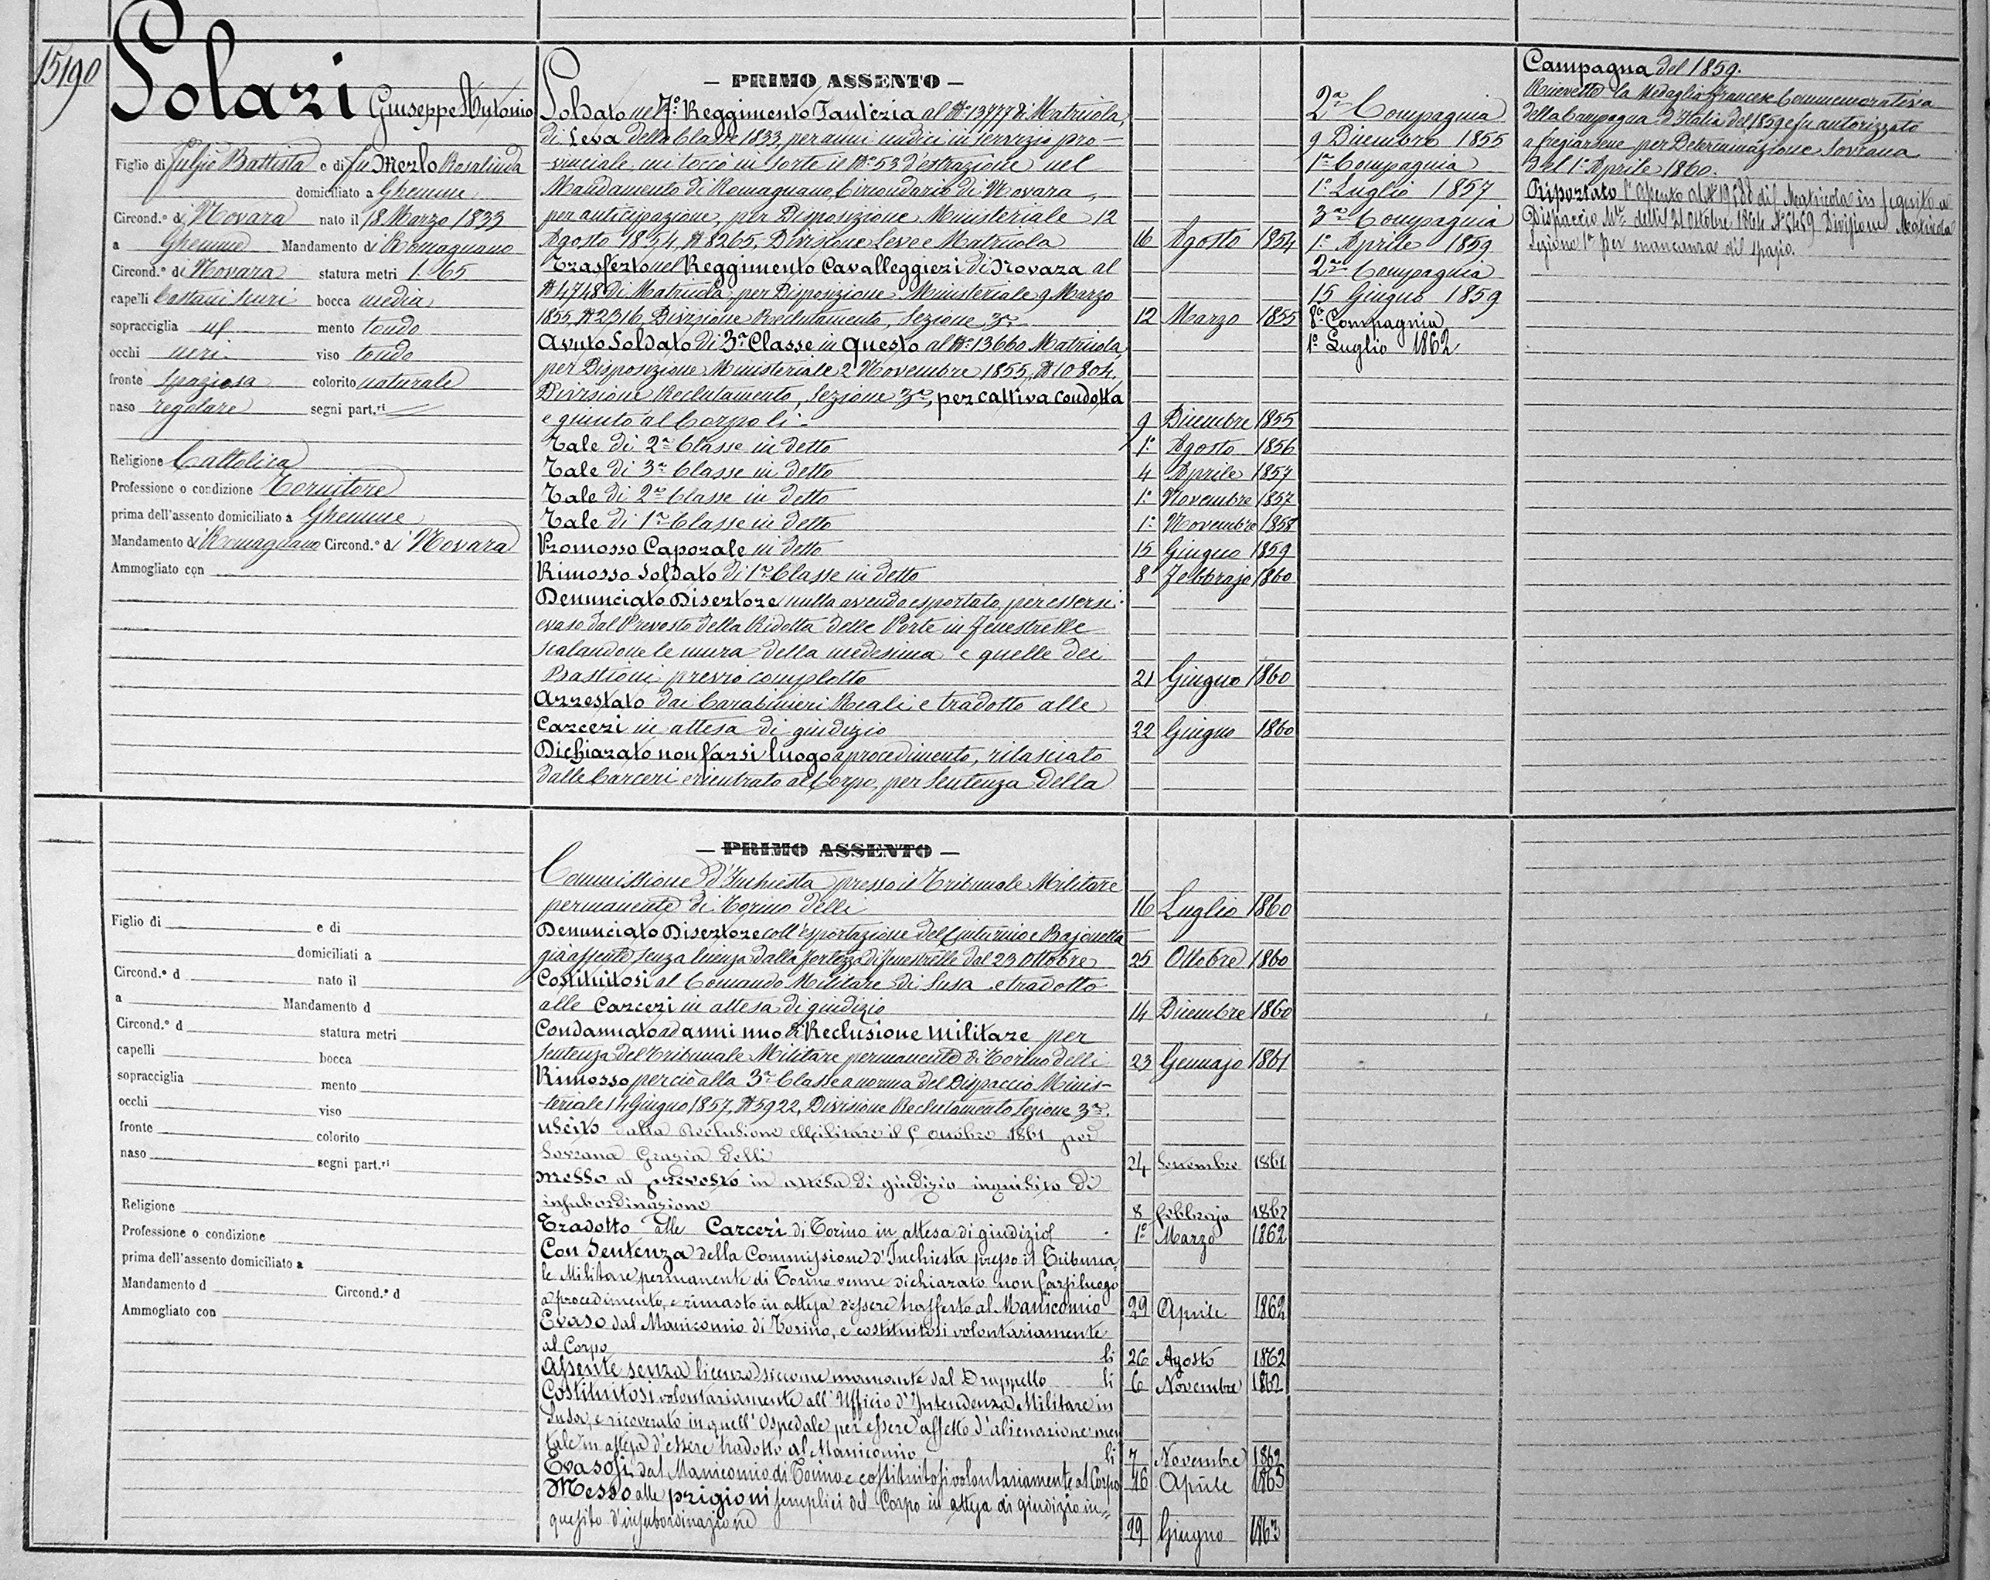 15190
Solazi Giuseppe Antonio
Figlio di fu Gio Battista e di fu Merlo Rosalinda
domiciliato a Ghemme
Circond.º di Novara nato il 18 Marzo 1833
a Ghemme Mandamento di Romagnano
Circond.º di Novara statura metri 1.65
capelli Castani scuri bocca media
sopracciglia id. mento tondo
occhi neri viso tondo
fronte spaziosa colorito naturale
naso regolare segni part.ri
Religione Cattolica
Professione o condizione Tornitore
prima dell'assento domiciliato a Ghemme
Mandamento di Romagnano Circond.º di Novara
Ammogliato con
— PRIMO ASSENTO —
Soldato nel 7º Reggimento Fanteria al Nº 13777 di Matricola,
di Leva della Classe 1833, per anni undici in servizio pro-
-vinciale, cui toccò in sorte il Nº 53 d'estrazione nel
Mandamento di Romagnano, Circondario di Novara,
per anticipazione, per Disposizione Ministeriale 12
Agosto 1854, Nº 8265, Divisione Leve e Matricola 16 Agosto 1854
Trasferto nel Reggimento Cavalleggieri di Novara al
Nº 4748 di Matricola, per Disposizione Ministeriale 9 Marzo
1855, Nº 2316, Divisione Reclutamento, Sezione 3ª 12 Marzo 1855
Avuto Soldato di 3ª Classe in questo al Nº 13660 Matricola,
per Disposizione Ministeriale 2 Novembre 1855, Nº 10804,
Divisione Reclutamento, Sezione 3ª, per cattiva condotta
e giunto al Corpo li 9 Dicembre 1855
Tale di 2ª Classe in detto 1º Agosto 1856
Tale di 3ª Classe in detto 4 Aprile 1857
Tale di 2ª Classe in detto 1º Novembre 1857
Tale di 1ª Classe in detto 1º Novembre 1858
Promosso Caporale in detto 15 Giugno 1859
Rimosso Soldato di 1ª Classe in detto 8 Febbrajo 1860
Denunciato Disertore nulla avendo esportato, per essersi
evaso dal Prevosto della Ridotta delle Porte in Fenestrelle
scalandone le mura della medesima e quelle dei
Bastioni previo complotto 21 Giugno 1860
Arrestato dai Carabinieri Reali e tradotto alle
Carceri in attesa di giudizio 22 Giugno 1860
Dichiarato non farsi luogo a procedimento, rilasciato
dalle Carceri e rientrato al Corpo, per Sentenza della
2ª Compagnia
9 Dicembre 1855
1ª Compagnia
1º Luglio 1857
3ª Compagnia
1º Aprile 1859
2ª Compagnia
15 Giugno 1859
8ª Compagnia
1º Luglio 1862
Campagna del 1859.
Ricevette la Medaglia Francese Commemorativa
della Campagna d'Italia del 1859 e fu autorizzato
a fregiarsene per Determinazione Sovrana
del 1º Aprile 1860.
Riportato l'assento al Nº di Matricola in seguito a
Dispaccio Mle delli 21 Ottobre 1864 Nº Divisione Matricola
Sezione 1ª per mancanza di spazio.
Figlio di e di
domiciliati a
Circond.º d nato il
a Mandamento d
Circond.º d statura metri
capelli bocca
sopracciglia mento
occhi viso
fronte colorito
naso segni part.ri
Religione
Professione o condizione
prima dell'assento domiciliato a
Mandamento d Circond.º d
Ammogliato con
— PRIMO ASSENTO —
Commissione d'Inchiesta presso il Tribunale Militare
permanente di Torino delli 16 Luglio 1860
Denunciato Disertore coll'esportazione del Cinturino e Bajonetta
già assente senza licenza dalla fortezza di Fenestrelle dal 23 Ottobre 25 Ottobre 1860
Costituitosi al Comando Militare di Susa e tradotto
alle Carceri in attesa di giudizio 14 Dicembre 1860
Condannato ad anni uno di Reclusione Militare per
Sentenza del Tribunale Militare permanente di Torino delli 23 Gennajo 1861
Rimosso perciò alla 3ª Classe a norma del Dispaccio Minis-
-teriale 14 Giugno 1857, Nº 5922, Divisione Reclutamento Sezione 3ª.
Uscito dalla Reclusione Militare il 5 Ottobre 1861 per
Sovrana Grazia delli 24 Settembre 1861
Messo al prevosto in attesa di giudizio inquisito di
insubordinazione 8 Febbrajo 1862
Tradotto alle Carceri di Torino in attesa di giudizio 1º Marzo 1862
Con Sentenza della Commissione d'Inchiesta presso il Tribuna-
le Militare permanente di Torino venne dichiarato non farsi luogo
a procedimento, e rimasto in attesa d'essere trasferto al Manicomio 29 Aprile 1862
Evaso dal Manicomio di Torino, e costituitosi volontariamente
al Corpo li 26 Agosto 1862
Assente senza licenza siccome mancante dal Drappello li 6 Novembre 1862
Costituitosi volontariamente all'Ufficio d'Intendenza Militare in
Susa, e ricoverato in quell'Ospedale per essere affetto d'alienazione men
tale in attesa d'essere tradotto al Manicomio li 7 Novembre 1862
Evasosi dal Manicomio di Torino e costituitosi volontariamente al Corpo 16 Aprile 1863
Messo alle prigioni semplici del Corpo in attesa di giudizio in-
quisito d'insubordinazione 29 Giugno 1863